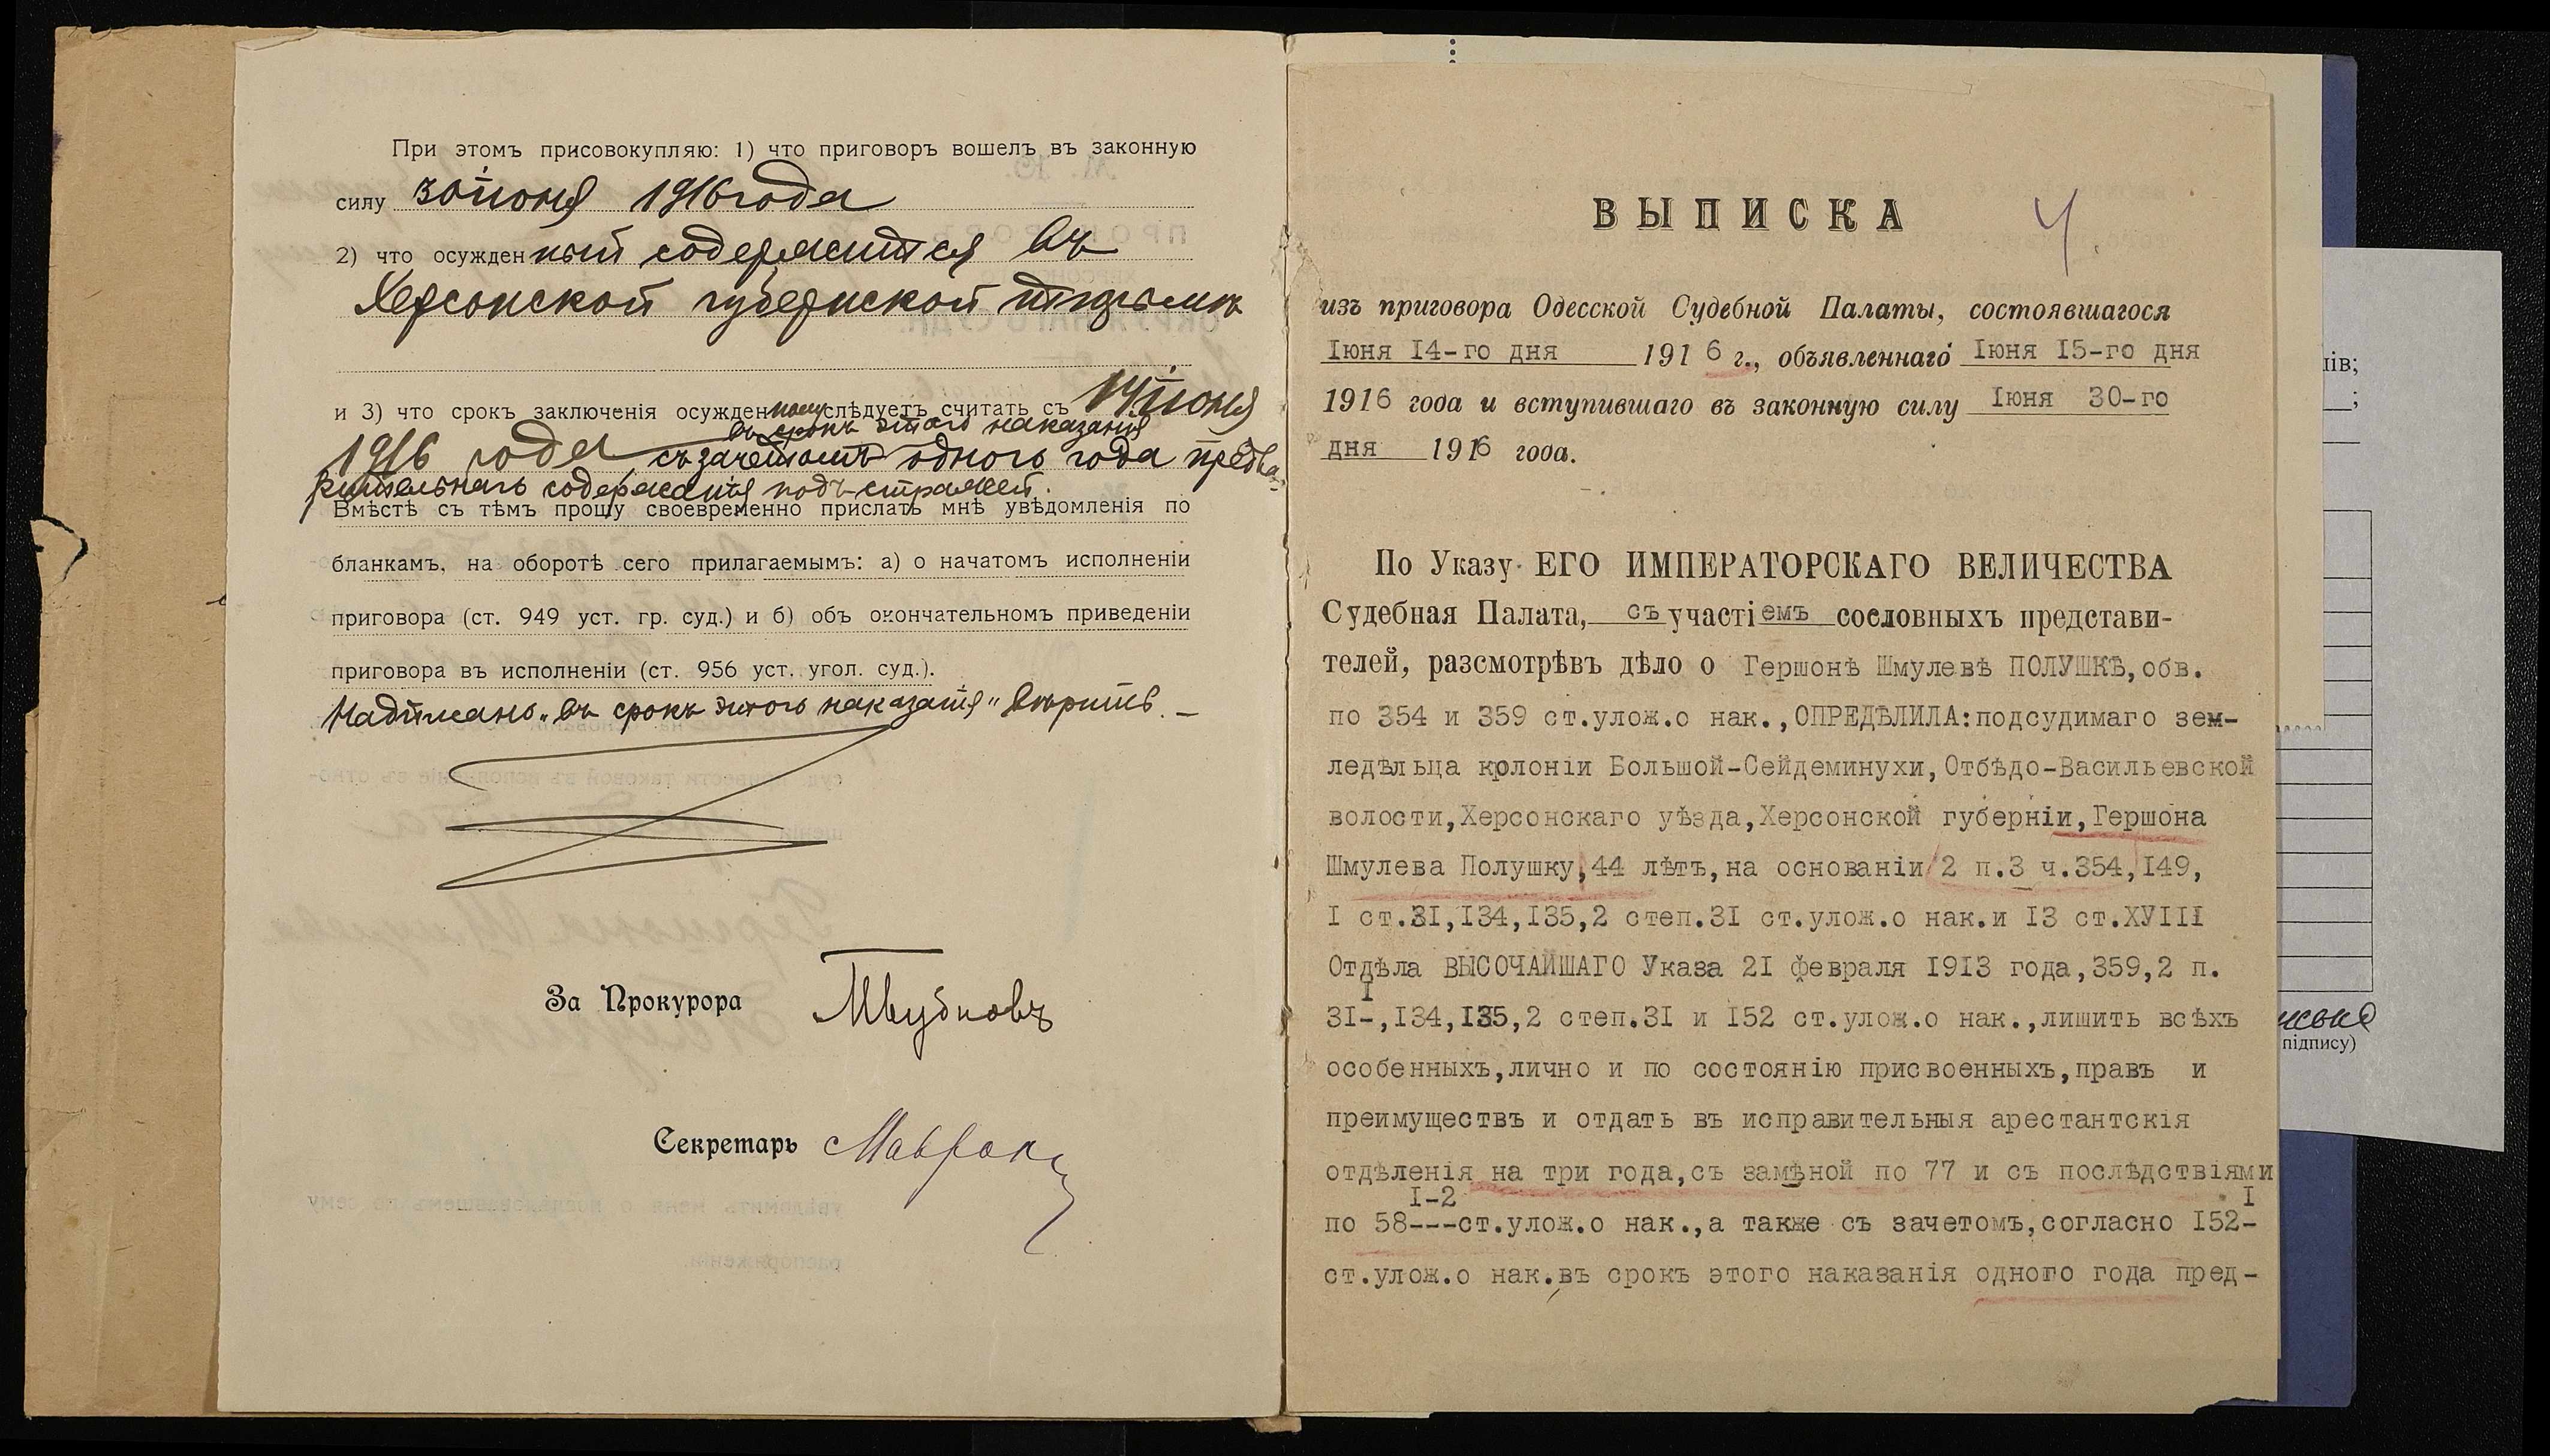 При этомъ присовокупляю: 1) что приговоръ вошелъ въ законную
силу 30 іюня 1916 года
2) что осужденный содержится въ
Херсонской губернской тюрьмѣ
и 3) что срокъ заключенія осужденному слѣдуетъ считать съ 14 іюня
въ срокъ этого наказанія
1916 года съ зачетомъ одного года предва-
рительнаго содержанія подъ стражей.
Вмѣстѣ съ тѣмъ прошу своевременно прислать мнѣ увѣдомленія по
бланкамъ, на оборотѣ сего прилагаемымъ: а) о начатомъ исполненіи
приговора (ст. 949 уст. гр. суд.) и б) объ окончательномъ приведеніи
приговора въ исполненіи (ст. 956 уст. угол. суд.).
Надписано „въ срокъ этого наказанія" вѣрить. —
За Прокурора
Секретарь
4
ВЫПИСКА
изъ приговора Одесской Судебной Палаты, состоявшагося
Іюня І4-го дня 1916 г., объявленнаго Іюня І5-го дня
1916 года и вступившаго въ законную силу Іюня 30-го
дня 1916 года.
По Указу ЕГО ИМПЕРАТОРСКАГО ВЕЛИЧЕСТВА
Судебная Палата, съ участіемъ сословныхъ представи-
телей, разсмотрѣвъ дѣло о Гершонѣ Шмулевѣ ПОЛУШКѢ, обв.
по 354 и 359 ст.улож.о нак.,ОПРЕДѢЛИЛА:подсудимаго зем-
ледѣльца колоніи Большой-Сейдеминухи,Отбѣдо-Васильевской
волости,Херсонскаго уѣзда,Херсонской губерніи,Гершона
Шмулева Полушку,44 лѣтъ,на основаніи 2 п.3 ч.354,І49,
І ст.31,І34,І35,2 степ.3І ст.улож.о нак.и І3 ст.ХУІІІ
Отдѣла ВЫСОЧАЙШАГО Указа 2І февраля І9І3 года,359,2 п.
І
3І-,І34,І35,2 степ.3І и І52 ст.улож.о нак.,лишить всѣхъ
особенныхъ,лично и по состоянію присвоенныхъ,правъ и
преимуществъ и отдать въ исправительныя арестантскія
отдѣленія на три года,съ замѣной по 77 и съ послѣдствіями
І-2 І
по 58---ст.улож.о нак.,а также съ зачетомъ,согласно І52-
ст.улож.о нак.въ срокъ этого наказанія одного года пред-
ів;
;
підпису)